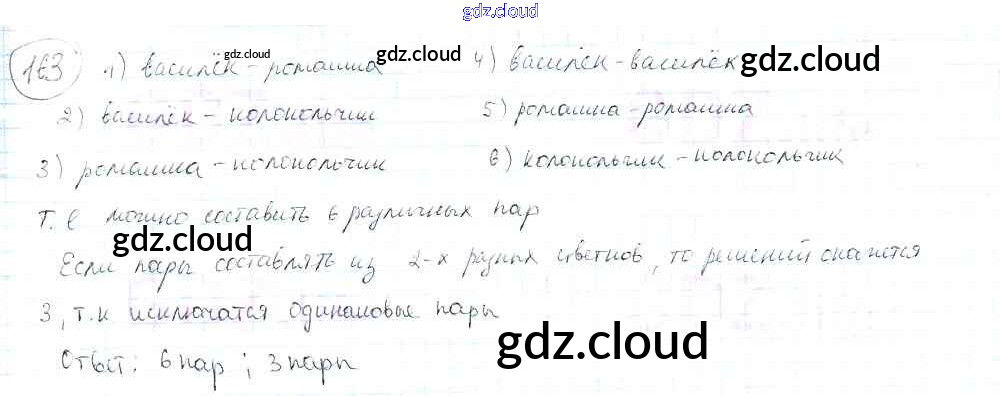 gdz.cloud
163 1) василёк - ромашка 4) василёк - василёк
gdz.cloud gdz.cloud gdz.cloud
2) василёк - колокольчик 5) ромашка - ромашка
3) ромашка - колокольчик 6) колокольчик - колокольчик
Т. е можно составить 6 различных пар
gdz.cloud
Если пары составлять из 2-х разных цветков, то решений останется
3, т.к исключатся одинаковые пары
gdz.cloud
Ответ: 6 пар; 3 пары